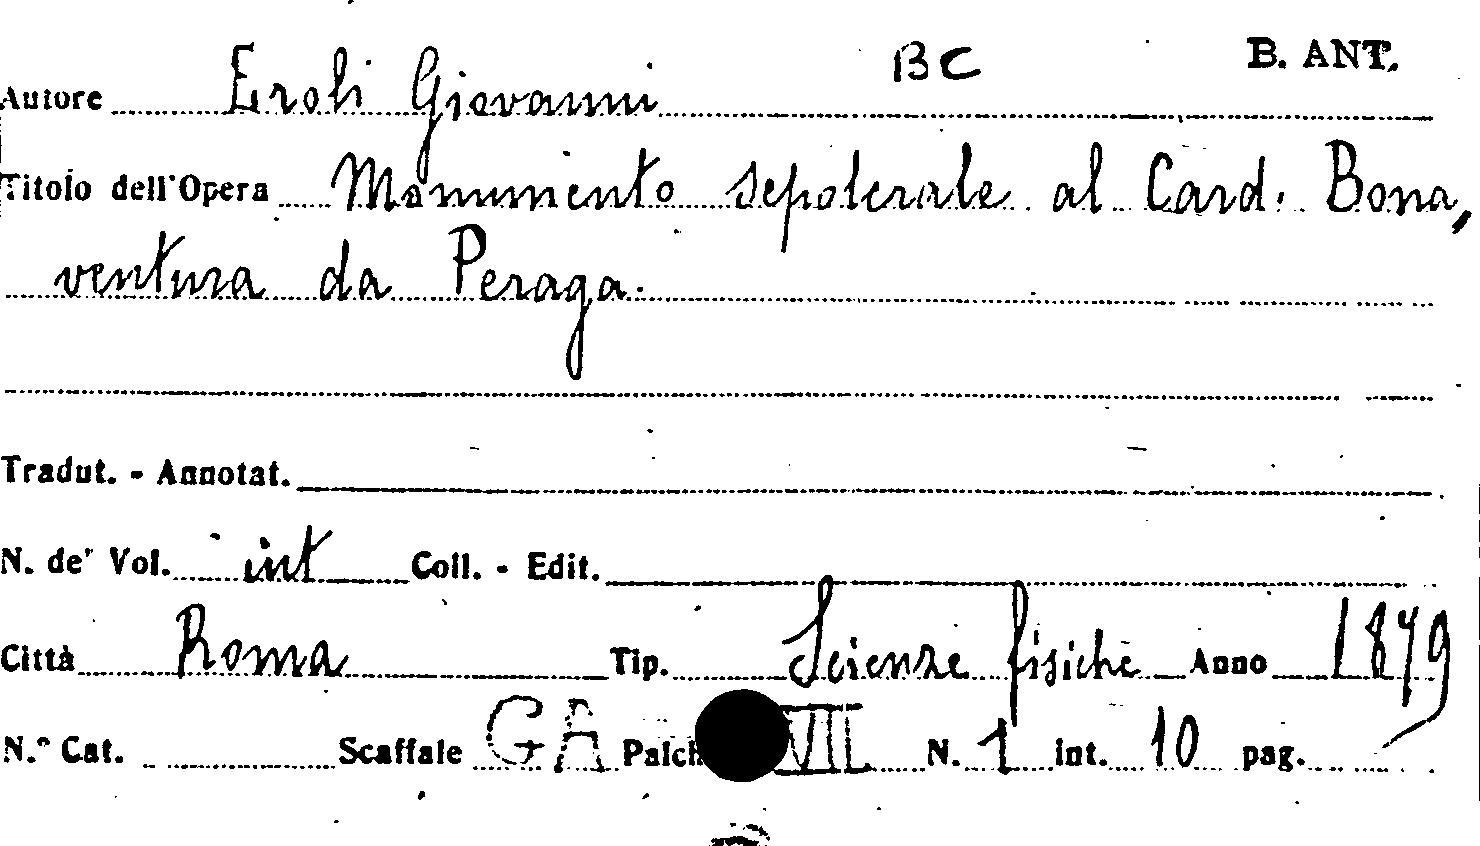 BC B. ANT.
Autore Eroli Giovanni
Titolo dell'Opera Monumento sepolcrale al Card. Bona,
ventura da Peraga.
Tradut. - Annotat.
N. de' Vol. int Coll. - Edit.
Città Roma Tip. Scienze fisiche Anno 1879
N.° Cat. Scaffale GA Palch VII N. 1 int. 10 pag.